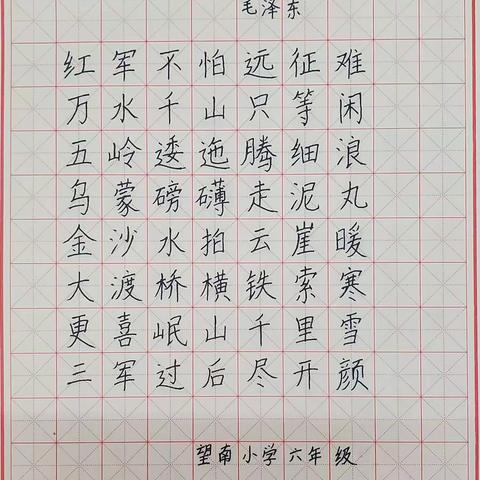 毛泽东
红军不怕远征难
万水千山只等闲
五岭逶迤腾细浪
乌蒙磅礴走泥丸
金沙水拍云崖暖
大渡桥横铁索寒
更喜岷山千里雪
三军过后尽开颜
望南小学六年级